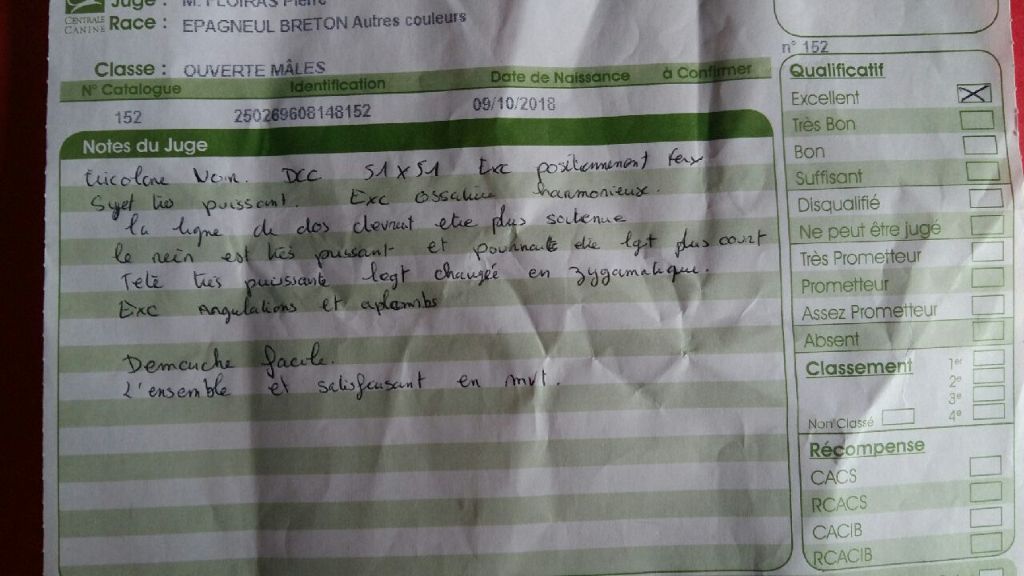 Juge : M. FLOIRAS Pierre
CENTRALE
CANINE
Race : EPAGNEUL BRETON Autres couleurs
Classe : OUVERTE MÂLES
N° Catalogue Identification Date de Naissance à Confirmer
152 250269608148152 09/10/2018
Notes du Juge
tricolore Noir. DCC 51 x 51 Exc positionnement
Sujet très puissant. Exc ossature harmonieux.
la ligne de dos devrait etre plus soutenue
le rein est très puissant et pourrait etre lgt plus court
Tete très puissante legt chargée en zygomatique.
Exc angulations et aplombs
Demarche facile.
L'ensemble et satisfaisant en mvt.
n° 152
Qualificatif
Excellent
Très Bon
Bon
Suffisant
Disqualifié
Ne peut être jugé
Très Prometteur
Prometteur
Assez Prometteur
Absent
Classement 1er
2e
3e
Non Classé 4e
Récompense
CACS
RCACS
CACIB
RCACIB